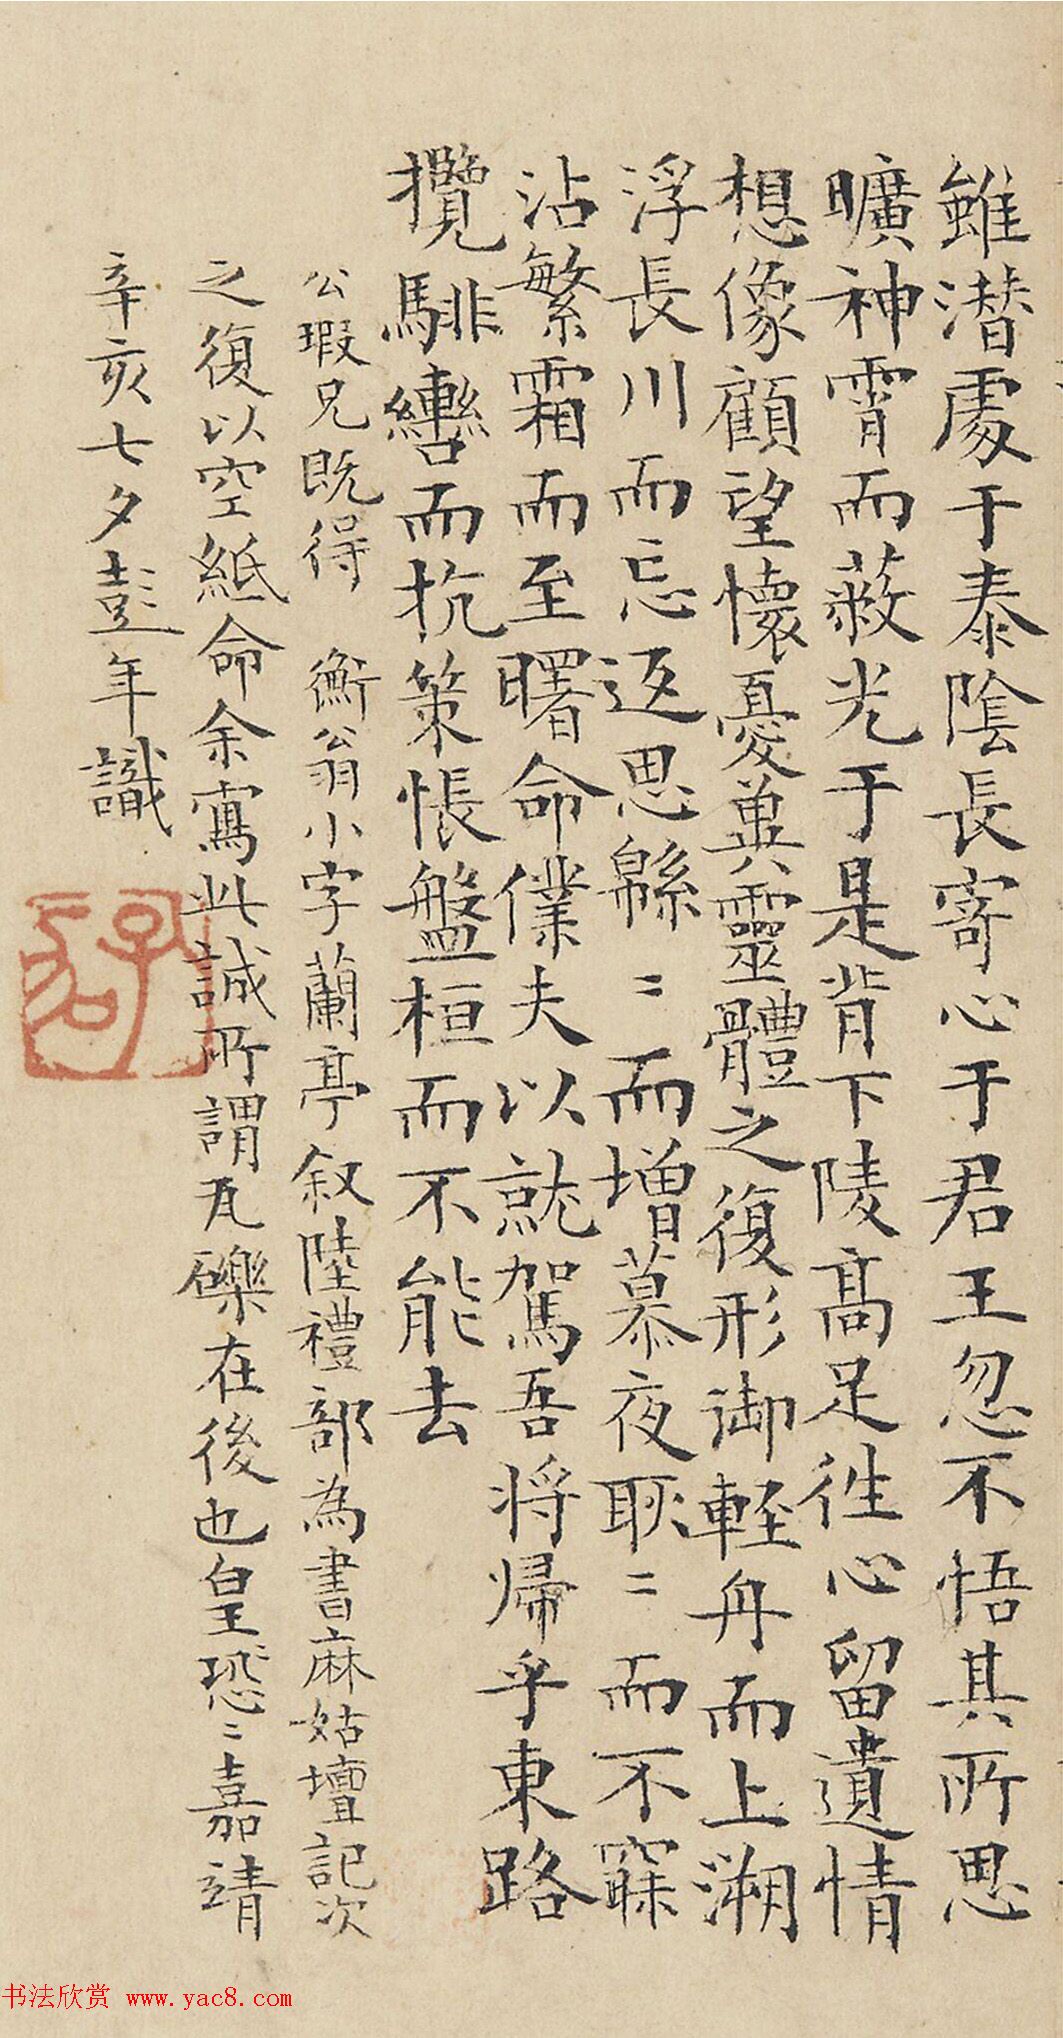 雖潛處于泰陰長寄心于君王忽不悟其所思
曠神宵而蔽光于是背下陵高足往心留遺情
想像顧望懷憂冀靈體之復形御輕舟而上溯
浮長川而忘返思緜〻而增慕夜耿〻而不寐
沾繁霜而至曙命僕夫以就駕吾将歸乎東路
攬騑轡而抗策悵盤桓而不能去
公瑕兄既得 衡翁小字蘭亭叙陸禮部為書麻姑壇記次
之復以空紙命余寫此誠所謂瓦礫在後也皇恐〻嘉靖
辛亥七夕彭年識
书法欣赏 www.yac8.com